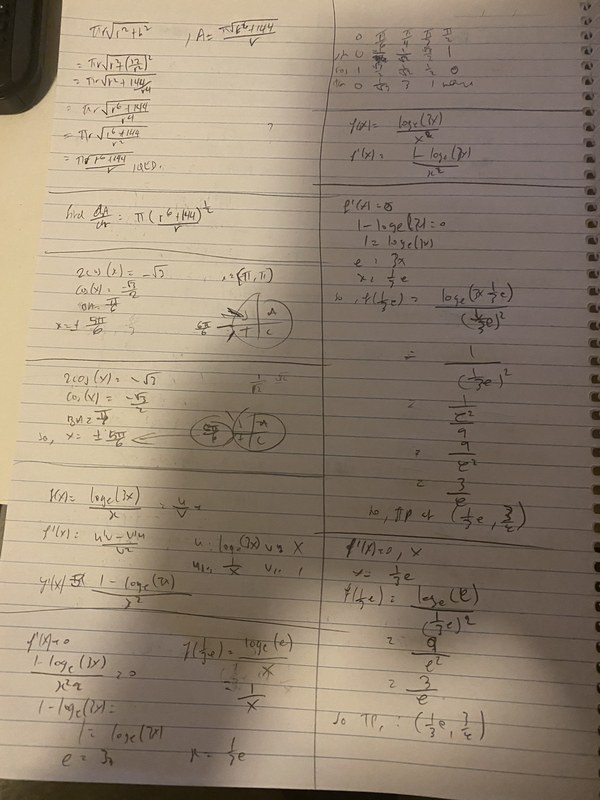 πr√r²+h²
, A= π√r⁶+144 / r
= πr√r²+(12/r²)²
= πr√r²+144/r⁴
= πr√r⁶+144 / r⁴
= πr√r⁶+144 / r²
= π√r⁶+144 / r , QED.
?
find dA/dr = π(r⁶+144)^½ / r
2cos(x) = -√3
cos(x) = -√3/2
x = ± 5π/6
A
T C
2cos(x) = -√3
cos(x) = -√3/2
so, x = ± 5π/6
5π/6
A
T C
f(x) = logₑ(3x) / x = u/v
f'(x) = u'v - v'u / v²
u = logₑ(3x) v = x
u' = 1/x v' = 1
f'(x) = 1 - logₑ(3x) / x²
f'(x) = 0
1 - logₑ(3x) / x² = 0
1 - logₑ(3x) =
1 = logₑ(3x)
e = 3x
x = ⅓e
f(⅓e) = logₑ(e) / x
1 / x
f(x) = logₑ(3x) / x
f'(x) = 1 - logₑ(3x) / x²
f'(x) = 0
1 - logₑ(3x) = 0
1 = logₑ(3x)
e = 3x
x = ⅓e
so, f(⅓e) = logₑ(3x ⅓e) / (⅓e)²
= 1 / (⅓e)²
= 1 / e²/9
= 9 / e²
= 3 / e
so, TP at (⅓e, 3/e)
f'(x)=0, x
x = ⅓e
f(⅓e) = logₑ(e) / (⅓e)²
= 9 / e²
= 3 / e
so TP, : (⅓e, 3/e)